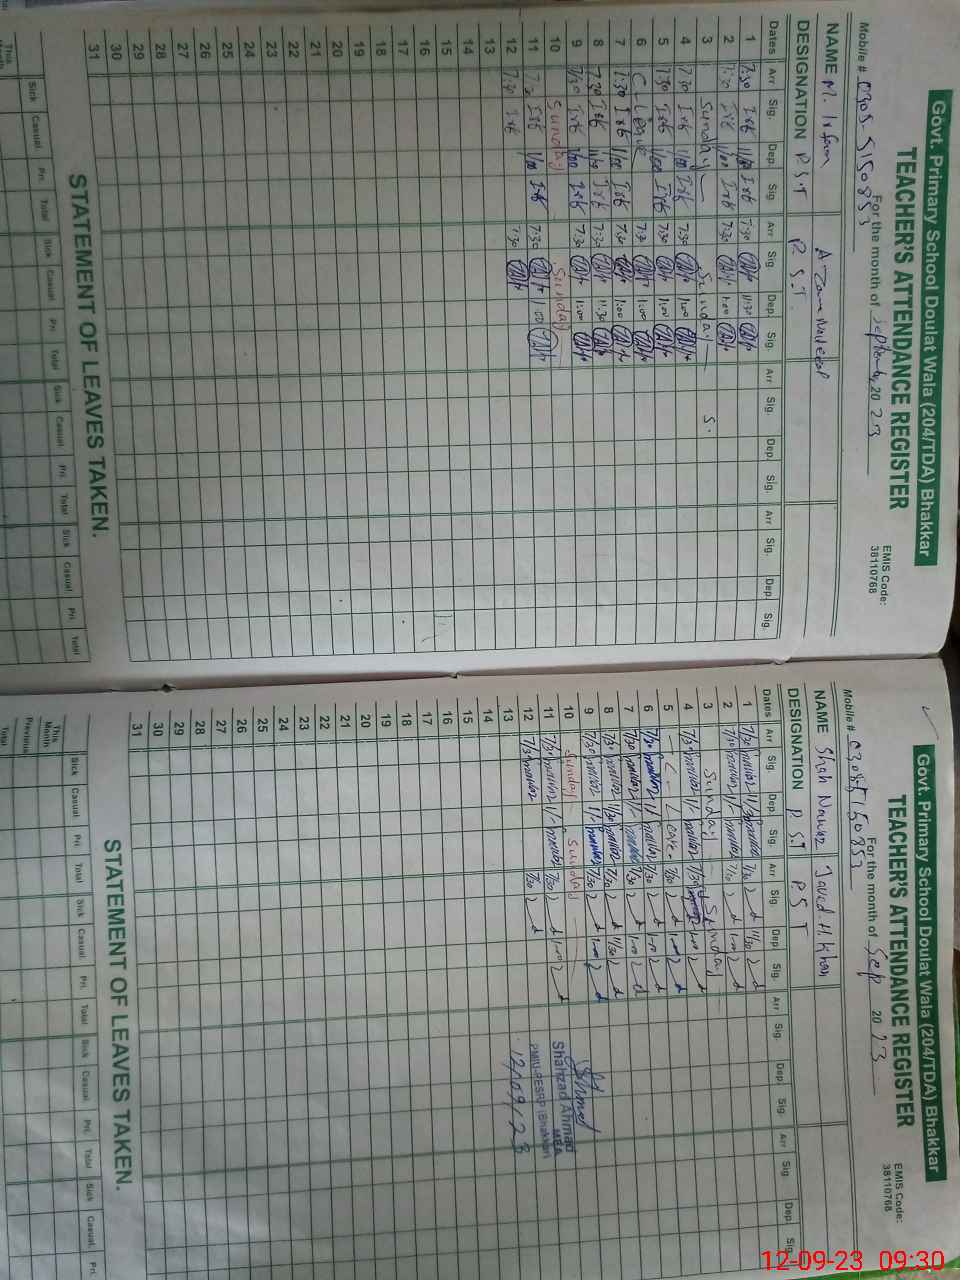 Govt. Primary School Doulat Wala (204/TDA) Bhakkar
TEACHER'S ATTENDANCE REGISTER
EMIS Code:
38110768
For the month of September, 2023
Mobile # 0305-5150853
NAME M. Irfan
DESIGNATION P.S.T P.S.T
Dates Arr Sig. Dep. Sig Arr Sig Dep. Sig. Arr Sig. Dep Sig. Arr Sig. Dep Sig.
1 7:30 11:30 7:30 11:30
2 7:30 1:00 7:30 1:00
3 Sunday Sunday S.
4 7:30 1:00 7:30 1:00
5 7:30 1:00 7:30 1:00
6 C. Leave 7:30 1:00
7 7:30 1:00 7:30 1:00
8 7:30 11:30 7:30 11:30
9 7:30 1:00 7:30 1:00
10 Sunday Sunday
11 7:30 1:00 7:30 1:00
12 7:30 7:30
13
14
15
16
17
18
19
20
21
22
23
24
25
26
27
28
29
30
31
STATEMENT OF LEAVES TAKEN.
Sick Casual Pri. Total Sick Casual Pri Total Sick Casual Pri. Total Sick Casual Pri. Total
This Month
Govt. Primary School Doulat Wala (204/TDA) Bhakkar
TEACHER'S ATTENDANCE REGISTER
EMIS Code:
38110768
For the month of Sep 2023
Mobile # 03085150853
NAME Shah Nawaz Javed. H. Khan
DESIGNATION P.S.T P.S.T
Dates Arr Sig. Dep. Sig. Arr Sig. Dep Sig. Arr Sig. Dep Sig. Arr Sig. Dep Sig.
1 7/30 11/30 7/30 11/30
2 7/30 1/- 7/30 1-00
3 Sunday Sunday
4 7/30 1/- 7/30 1-00
5 C- Leave- 7/30 1-00
6 7/30 1/- 7/30 1-00
7 7/30 1/- 7/30 1-00
8 7/30 11/30 7/30 11/30
9 7/30 1/- 7/30 1-00
10 Sunday Sunday
11 7/30 1/- 7/30 1-00
12 7/30 7/30
13
14
15
16
17
18
19
20
21
22
23
24
25
26
27
28
29
30
31
Shahzad Ahmad
MEA
PMIU-PESRP (Bhakkar)
12/09/23
STATEMENT OF LEAVES TAKEN.
Sick Casual Pri Total Sick Casual Pri Total Sick Casual Pri. Total Sick Casual Pri
This Month
Previous
Total
12-09-23 09:30